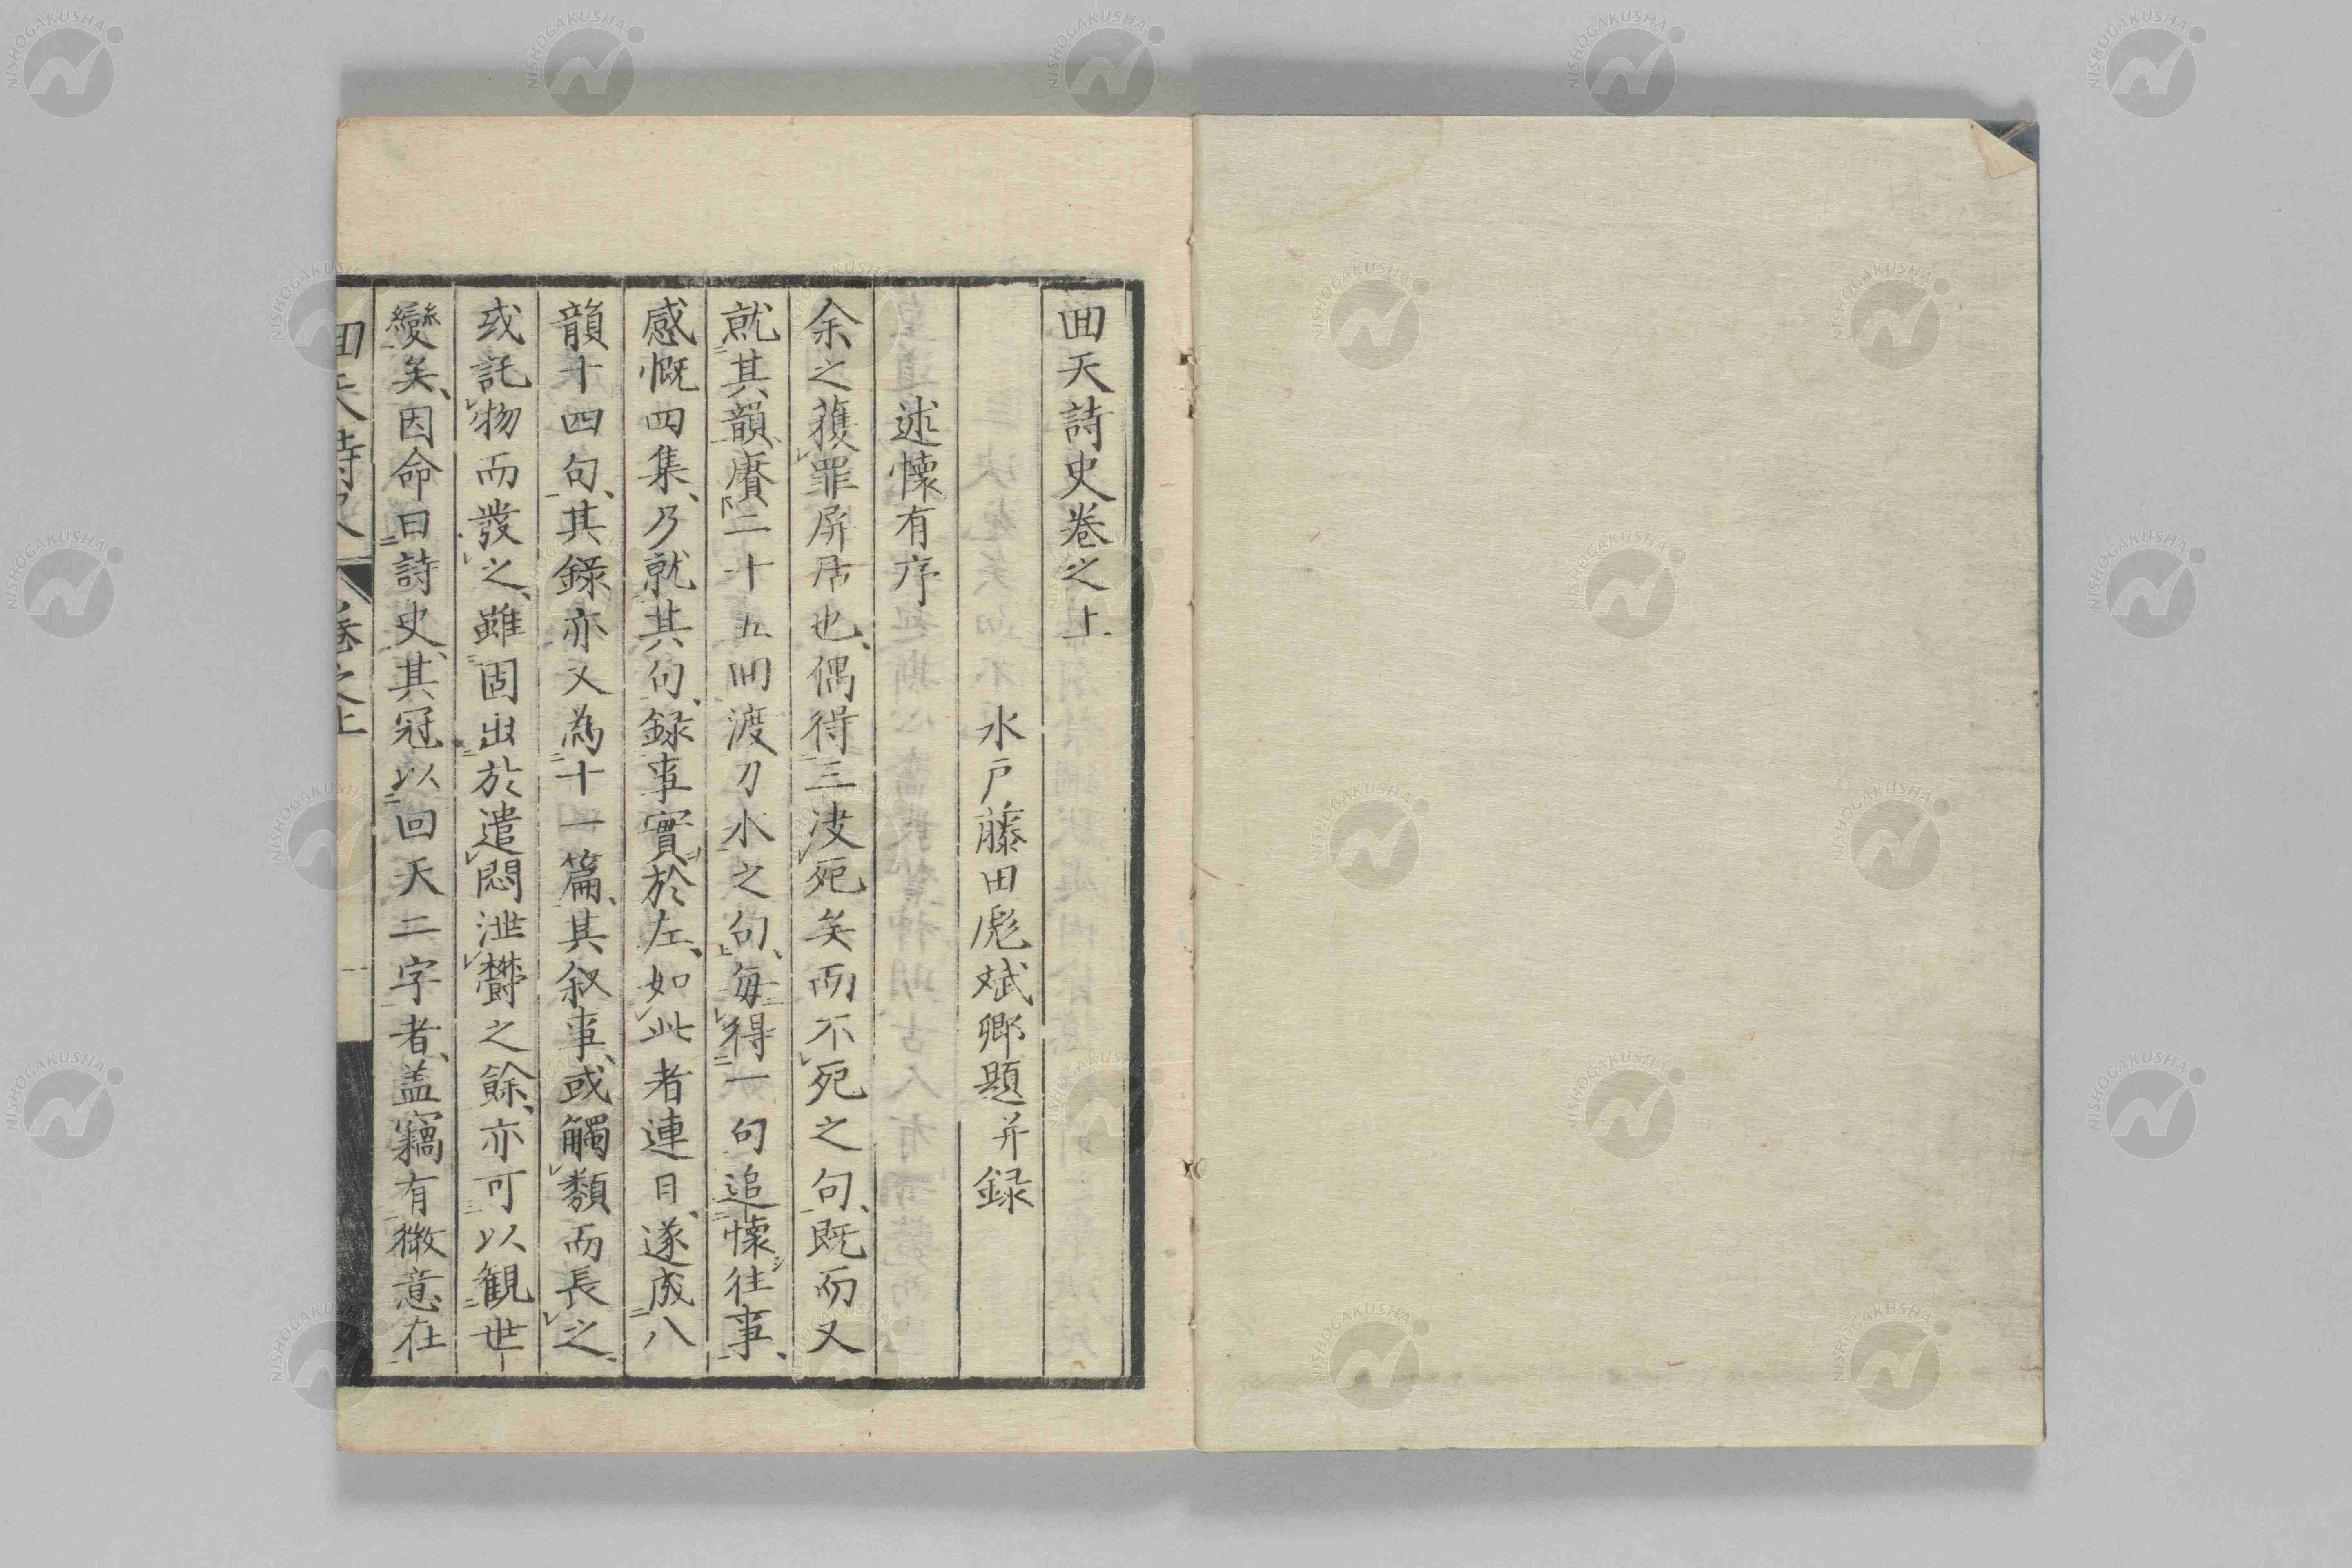 回天詩史卷之上
水戸藤田彪斌卿題并録
述懷有序
余之獲罪屏居也、偶得三决死矣而不死之句、既而又
就其韻、賡二十五回渡刀水之句、每得一句追懷往事、
感慨四集、乃就其句、録事實於左、如此者連日、遂成八
韻十四句、其錄亦又為十一篇、其叙事、或觸類而長之、
或託物而發之、雖固出於遣悶洩鬱之餘、亦可以観世
變矣、因命曰詩史、其冠以回天二字者、盖竊有微意在
回天詩史 卷之上 一
NISHOGAKUSHA